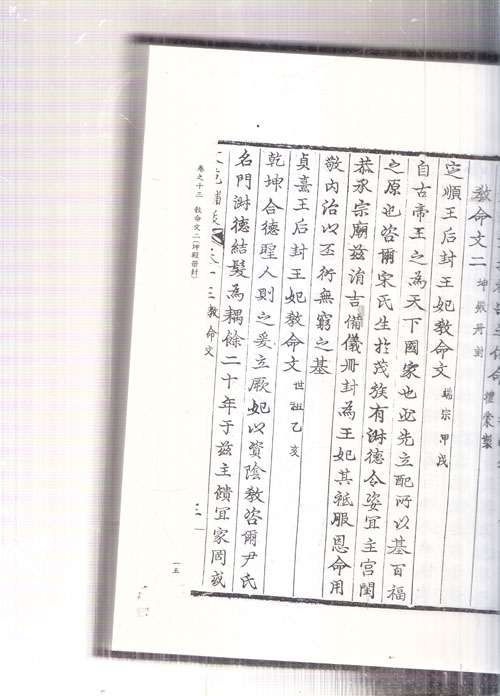 禮業製
教命文二 坤殿冊封
定順王后封王妃教命文 端宗甲戌
自古帝王之為天下國家也必先立配所以基百福
之原也咨爾宋氏生於茂族有淑德令姿宜主宮闈
恭承宗廟玆消吉備儀冊封為王妃其祗服恩命用
敬內治以丕衍無窮之基
貞熹王后封王妃教命文 世祖乙亥
乾坤合德聖人則之爰立厥妃以資陰教咨爾尹氏
名門淑德結髮為耦餘二十年于玆主饋宜家罔或
卷十三教命文 三
卷之十三 教命文二(坤殿冊封)
一五